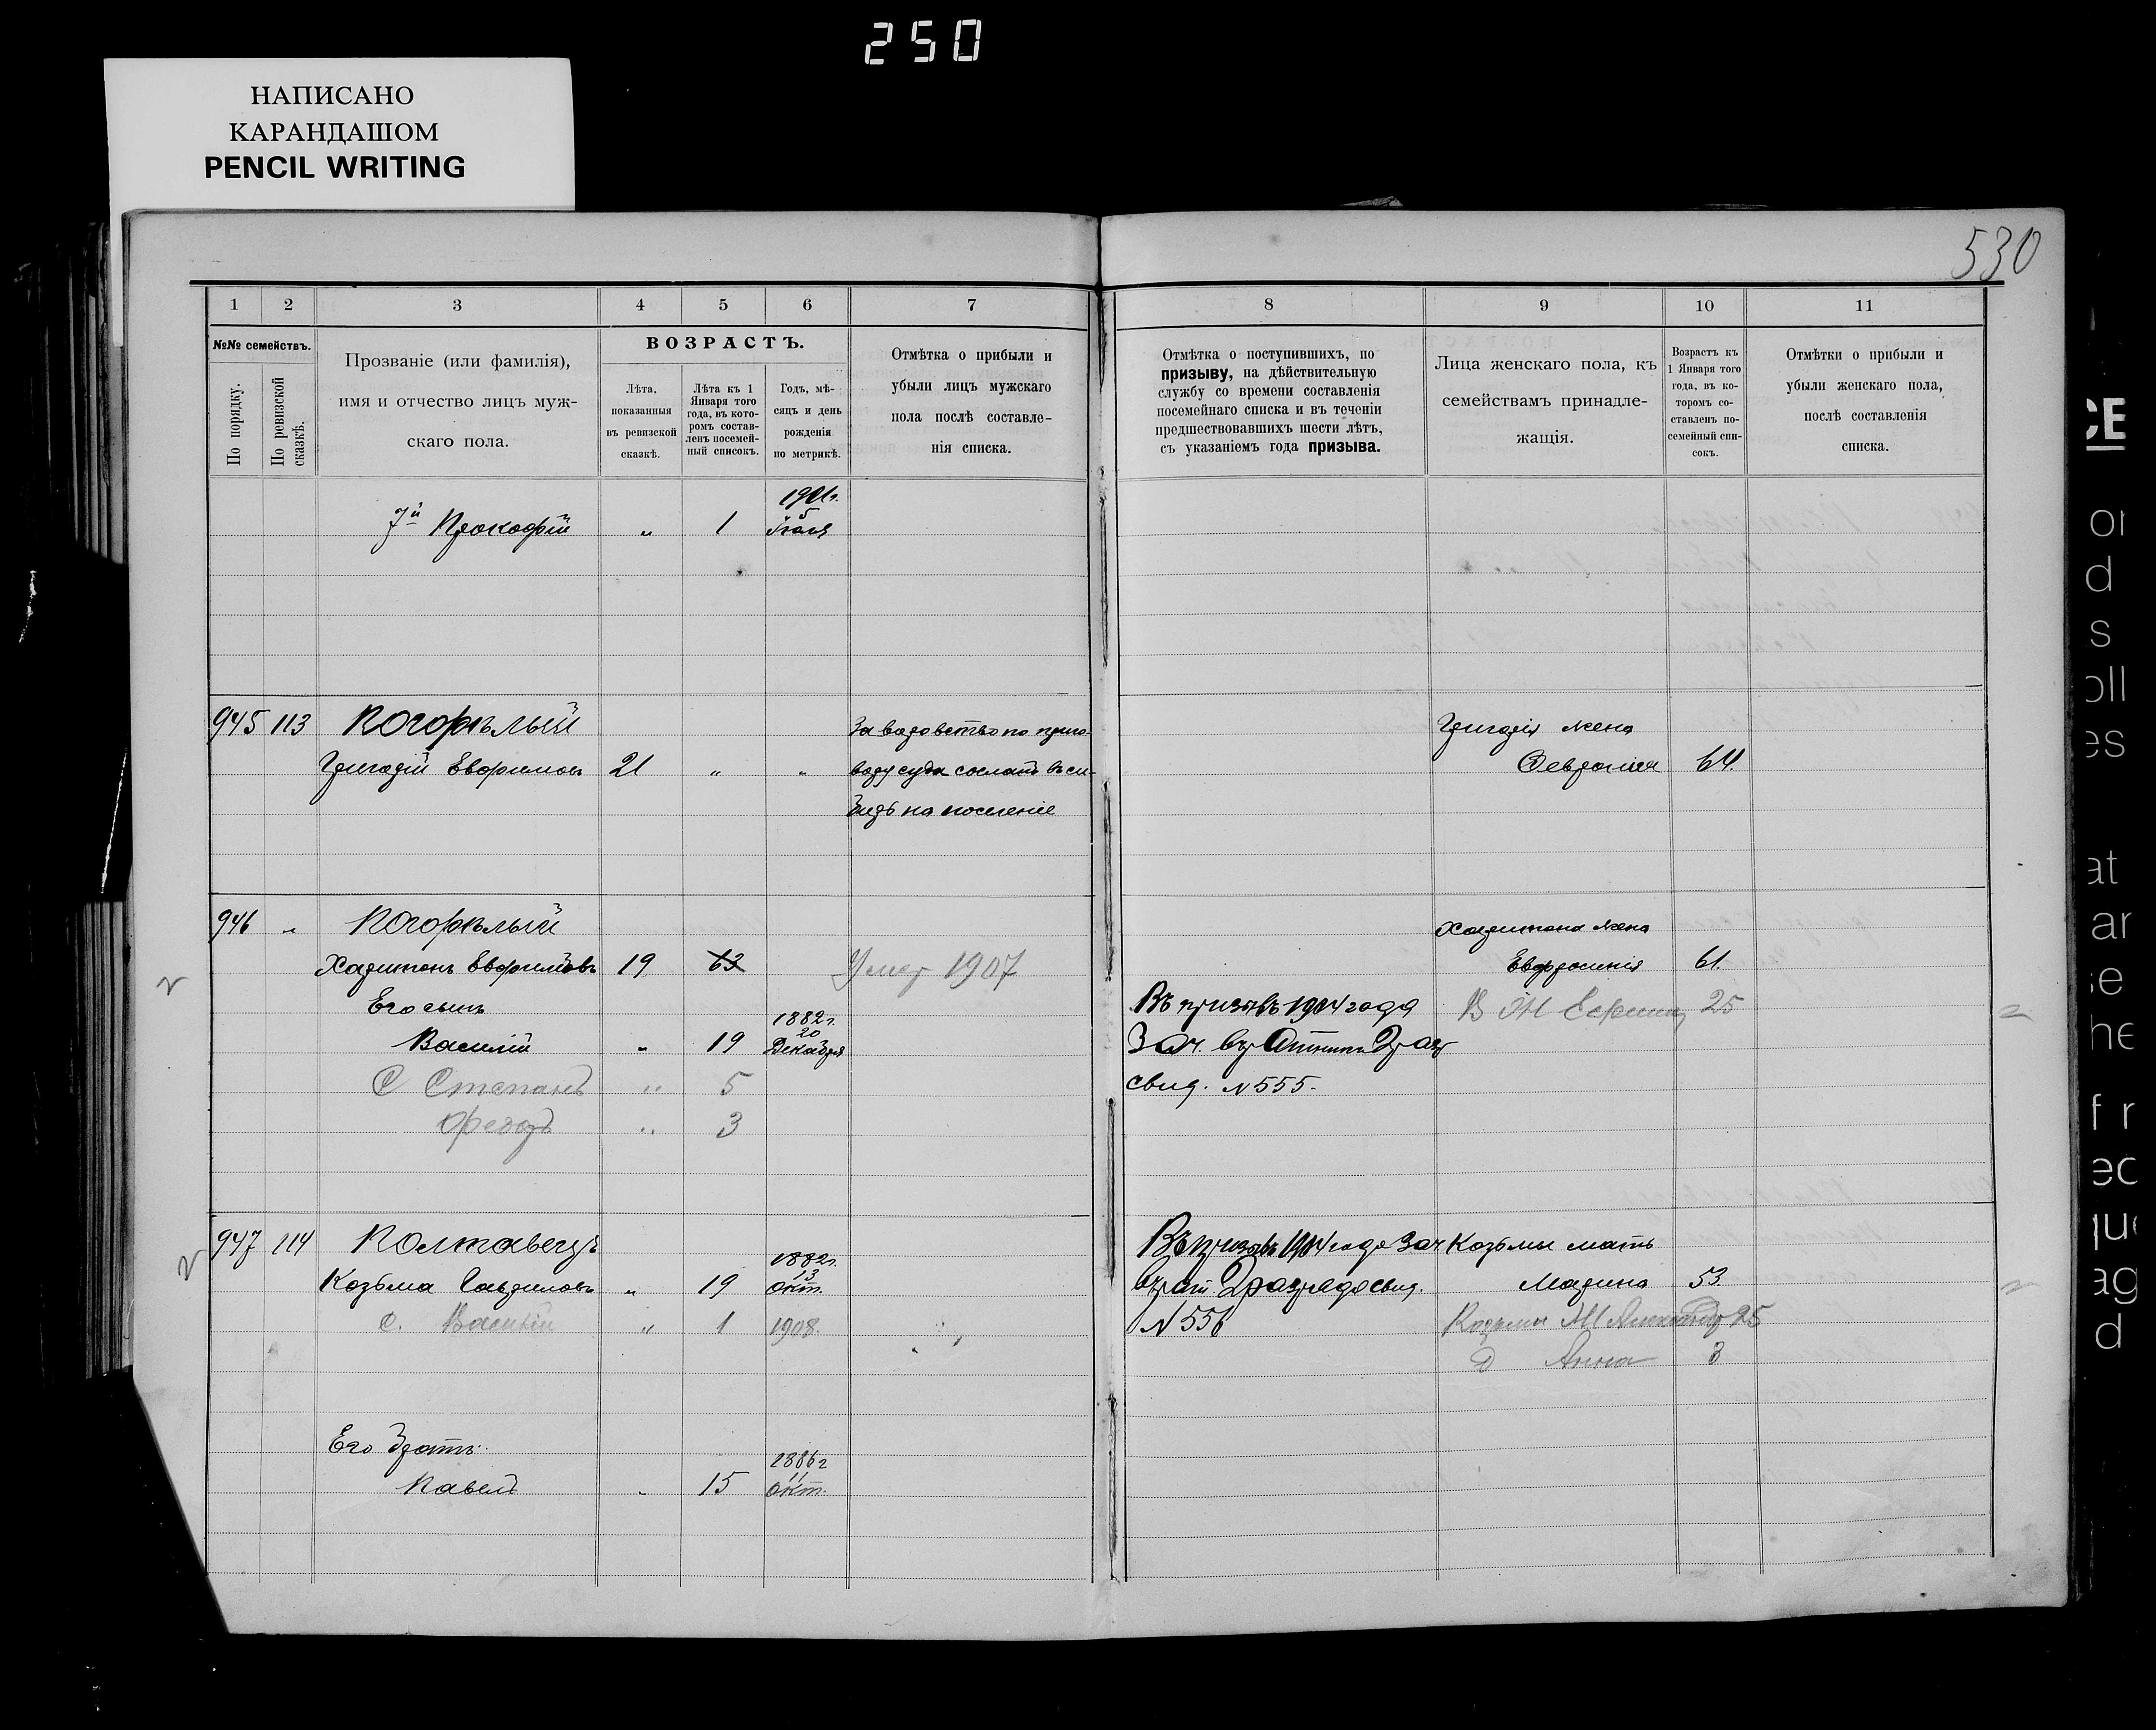 250
НАПИСАНО
КАРАНДАШОМ
PENCIL WRITING
530
1 2 3 4 5 6 7 8 9 10 11
№№ семействъ.
По порядку.
По ревизской сказкѣ.
Прозваніе (или фамилія),
имя и отчество лицъ муж-
скаго пола.
ВОЗРАСТЪ.
Лѣта,
показанныя
въ ревизской
сказкѣ.
Лѣта къ 1
Января того
года, въ кото-
ромъ состав-
ленъ посемей-
ный списокъ.
Годъ, мѣ-
сяцъ и день
рожденія
по метрикѣ.
Отмѣтка о прибыли и
убыли лицъ мужскаго
пола послѣ составле-
нія списка.
Отмѣтка о поступившихъ, по
призыву, на дѣйствительную
службу со времени составленія
посемейнаго списка и въ теченіи
предшествовавшихъ шести лѣтъ,
съ указаніемъ года призыва.
Лица женскаго пола, къ
семействамъ принадле-
жащія.
Возрастъ къ
1 Января того
года, въ ко-
торомъ со-
ставленъ по-
семейный спи-
сокъ.
Отмѣтки о прибыли и
убыли женскаго пола,
послѣ составленія
списка.
1901г.
7й Прокофій " 1 5 Іюля
945 113 Погорѣлый За воровство по приго- Григорія жена
Григорій Евфимовъ 21 " " вору суда сосланъ въ си- Февронія 64.
бирь на поселеніе
946 " Погорѣлый Харитона жена
Харитонъ Евфимовъ 19 63 Умер 1907 Евфросинія 61.
Его сынъ Въ призывъ 1904 года В Ж 25
1882г.
20
Василій " 19 Декабря Зач. въ 2 раз
С Степанъ " 5 свид. N 555.
Федоръ " 3
947 114 Полтавецъ Въ призывъ 1904 года Зач. Козьмы мать
1882г.
13
Козьма Гаврилов " 19 Окт. въ рат 2 разряда свид. Марина 53.
С. Василій " 1 1908. N 556 Козьмы Ж 25
Д Анна 3
Его братъ
1886г
11
Павелъ " 15 Окт.